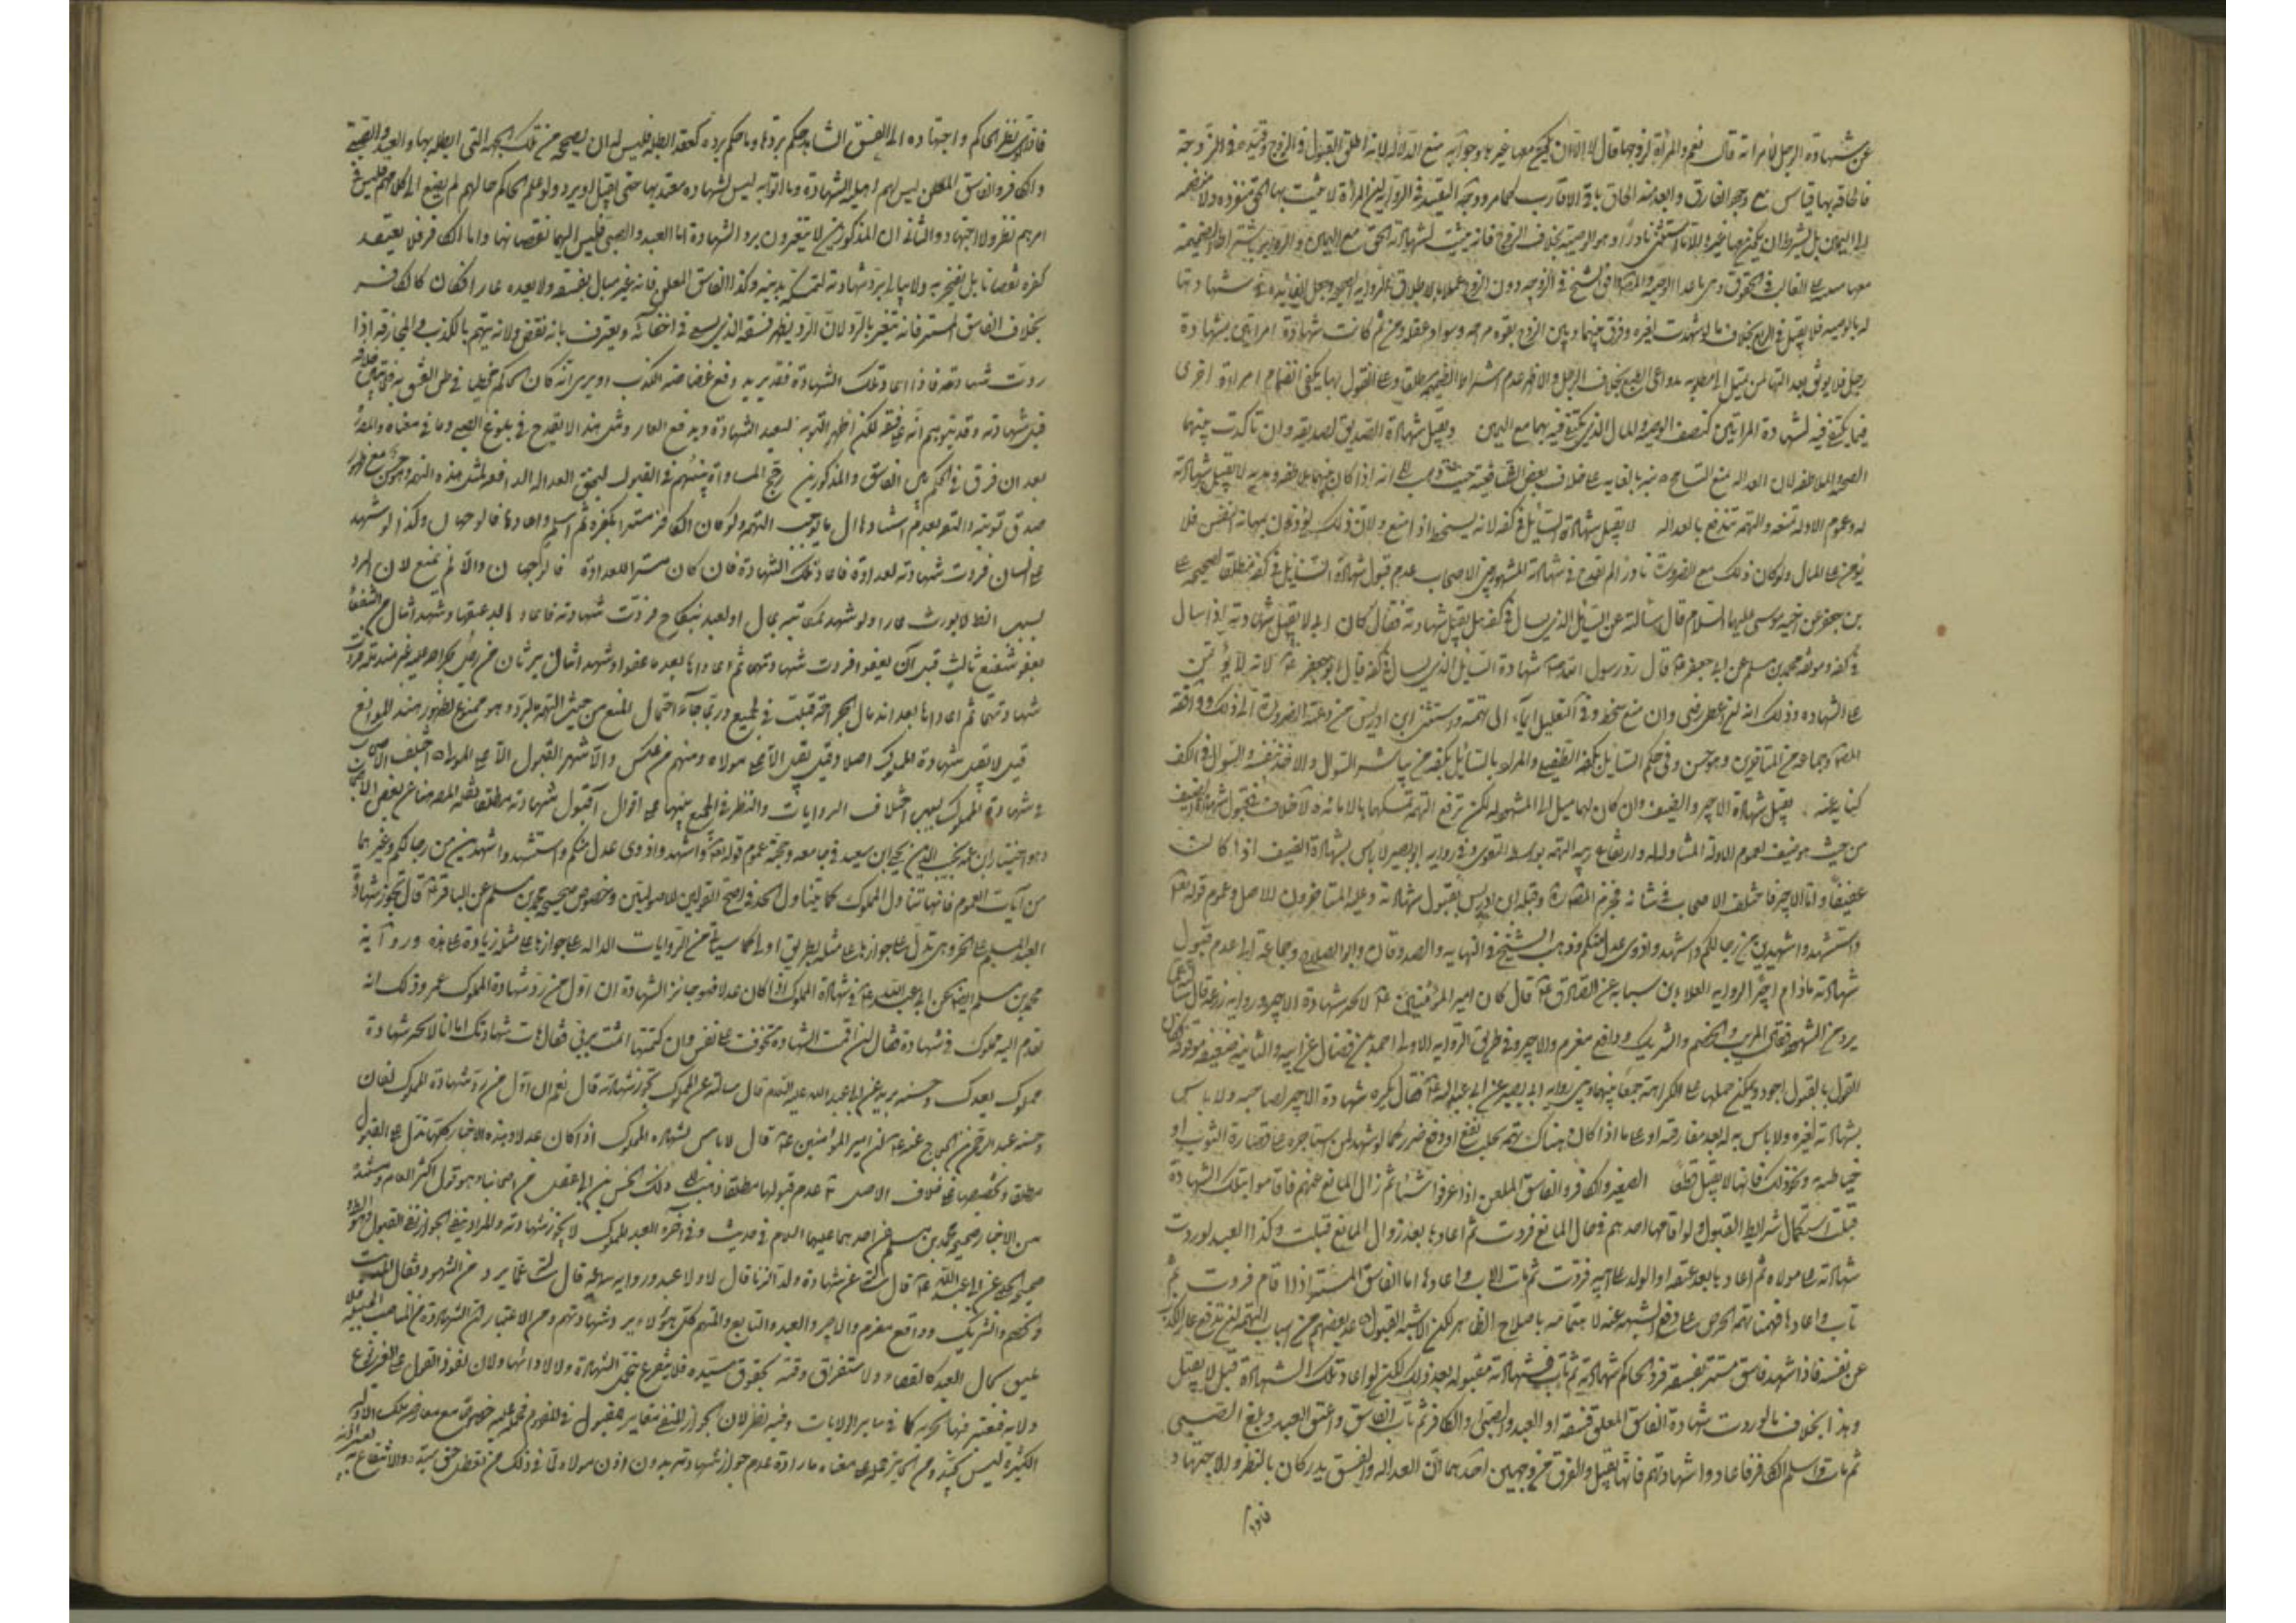 عن شهادة الرجل لامرأته قال نعم والمرأة لزوجها قال لا الا ان يكون معها غيرها وجوابه منع الدلالة لانه اطلق القبول في الزوج وقيده في الزوجة
فالحاقه بها قياس مع وجود الفارق وابعد منه الحاق باقي الاقارب كما مر ووجه التقييد في الرواية ان المرأة لا يثبت بها الحق منفردة ولا منضمة
الى اليمين بل يشترط ان يكون معها غيرها الا ما استثنى نادرا وهو الوصية بخلاف الزوج فانه يثبت بشهادته الحق مع اليمين
له بالوصية فلا يقبل في الربع بخلاف ما لو شهدت لغيره وفرق بينهما وبين الزوج بقوة مزاجه وسواد عقله ومن ثم كانت شهادة امرأتين بشهادة
رجل فلا يوثق بعدالتها من ميل الى مطلوبه بدواعي الطبع بخلاف الرجل والاظهر عدم اشتراط الضميمة مطلقا وعلى القول بها يكفي انضمام امرأة اخرى
فيما يكتفى فيه بشهادة المرأتين كنصف الوصية والمال الذي يكتفى فيه بهما مع اليمين ويقبل شهادة الصديق لصديقه وان تأكدت بينهما
الصحبة والملاطفة لان العدالة تمنع التسامح منبه بالغاية على خلاف بعض الشافعية حيث ذهب الى انه اذا كان بينهما ملاطفة وهدية لا يقبل شهادته
له وعموم الادلة تنفيه والتهمة تندفع بالعدالة لا يقبل شهادة السائل في كفه لانه يسخط اذا منع ولان ذلك يؤذن بمهانة النفس فلا
يؤمن على المال ولو كان ذلك مع الضرورة نادرا لم يقدح في شهادته المشهور بين الاصحاب عدم قبول شهادة السائل في كفه مطلقا لصحيحة علي
بن جعفر عن اخيه موسى عليهما السلام قال سألته عن السائل الذي يسأل في كفه هل يقبل شهادته فقال كان ابي لا يقبل شهادته اذا سأل
في كفه وموثقة محمد بن مسلم عن ابي جعفر ع قال رد رسول الله ص شهادة السائل الذي يسأل في كفه قال ابو جعفر ع لانه لا يؤتمن
على الشهادة وذلك انه ان اعطي رضي وان منع سخط وفي التعليل ايماء الى تهمته واستثنى ابن ادريس من دعته الضرورة الى ذلك ووافقه
المص وجماعة من المتأخرين وهو حسن وفي حكم السائل بكفه الطفيلي والمراد بالسائل بكفه من يباشر السؤال والاخذ بنفسه والسؤال في الكف
كناية عنه يقبل شهادة الاجير والضيف وان كان لهما ميل الى المشهود له لكن يرفع التهمة تمسكهما بالامانة لا خلاف في قبول شهادة الضيف
من حيث هو ضيف لعموم الادلة المتناولة له وارتفاع ريبة التهمة بواسطة التقوى وفي رواية ابي بصير لا بأس بشهادة الضيف اذا كان
عفيفا واما الاجير فاختلف الاصحاب في شأنه فجزم المص هنا وقبله ابن ادريس بقبول شهادته وعليه المتأخرون للاصل وعموم قوله تع
واستشهدوا شهيدين من رجالكم واشهدوا ذوي عدل منكم وذهب الشيخ في النهاية والصدوقان وابو الصلاح وجماعة الى عدم قبول
شهادته ما دام اجيرا لرواية العلاء بن سيابة عن الصادق ع قال كان امير المؤمنين ع لا يجيز شهادة الاجير ورواية زرعة قال سألته عما
يرد من الشهود فقال المريب والخصم والشريك ودافع مغرم والاجير وفي طريق الرواية الاولى احمد بن فضال عن ابيه والثانية ضعيفة موقوفة
القول بالقبول اجود ويمكن حملها على الكراهة جمعا بينهما وبين رواية ابي بصير عن ابي عبد الله ع فقال يكره شهادة الاجير لصاحبه ولا بأس
بشهادته لغيره ولا بأس به له بعد مفارقته او على ما اذا كان هناك تهمة بجلب نفع او دفع ضرر كما لو شهد لمن استأجره على قصارة الثوب او
خياطته ونحو ذلك فانها لا يقبل قطعا الصغير والكافر والفاسق المعلن اذا عرفوا شيئا ثم زال المانع عنهم فاقاموا بتلك الشهادة
قبلت لاستكمال شرايط القبول ولو اقامها احدهم في حال المانع فردت ثم اعادها بعد زوال المانع قبلت وكذا العبد لو ردت
شهادته على مولاه ثم اعادها بعد عتقه او الولد على ابيه فردت ثم مات الاب واعادها اما الفاسق المستتر اذا اقام فردت ثم
تاب واعادها فهنا تهمة الحرص على دفع الشبهة عنه لاهتمامه باصلاح الظاهر لكن الاشبه القبول
عن نفسه فاذا شهد فاسق مستتر بفسقه فرد الحاكم شهادته ثم تاب فشهادته مقبولة بعد ذلك لكن لو اعاد تلك الشهادة قيل لا يقبل
وهذا بخلاف ما لو ردت شهادة الفاسق المعلن فسقه او العبد والصبي والكافر ثم تاب الفاسق واعتق العبد وبلغ الصبي
ثم مات واسلم الكافر فاعادوا شهادتهم فانها تقبل والفرق من وجهين احدهما ان العدالة والفسق يدركان بالنظر والاجتهاد
فاذا
فاذا ادى نظر الحاكم واجتهاده الى الفسق الشاهد حكم بردها وما حكم برده كعقد ابطله فليس له ان يصححه من تلك الجهة التي ابطله بها والعبد والصبي
والكافر والفاسق المعلن ليس لهم اهلية الشهادة وما اتوا به ليس بشهادة معتد بها حتى يقبل او يرد ولو علم الحاكم حالهم لم يصغ الى كلامهم فليس في
امرهم نظر ولا اجتهاد والثاني ان المذكورين لا يتعيرون برد الشهادة اما العبد والصبي فليس اليهما نقصانهما واما الكافر فلا يعتقد
كفره نقصانا بل يفتخر به ولا يبالي برد شهادته لتمسكه بدينه وكذا الفاسق المعلن فانه غير مبال بفسقه ولا يعده عارا فكان كالكافر
بخلاف الفاسق المستتر فانه يتعير بالرد لان الرد يظهر فسقه الذي يسعى في اخفائه ويعترف بانه نقص ولانه يتهم بالكذب والمجازفة اذا
ردت شهادته فاذا اعاد تلك الشهادة فقد يريد دفع غضاضة الكذب او يرى انه كان الحاكم مخطيا في ظن الفسق به
قبل شهادته وقد يتوهم انه على فسقه لكن اظهر التوبة ليعيد الشهادة ويدفع العار ومثل هذا لا يقدح في بلوغ الصبي وما في معناه والمص
بعد ان فرق في الحكم بين الفاسق والمذكورين رجح المساواة بينهم في القبول لتحقق العدالة الدافعة لمثل هذه التهمة وهو حسن مع ظهور
صدق توبته والثقة بعدم استناده الى ما يوجب التهمة ولو كان الكافر مستترا بكفره ثم اسلم واعادها فالوجهان وكذا لو شهد
على انسان فردت شهادته لعداوة فاعاد تلك الشهادة فان كان مستترا للعداوة فالوجهان والا لم يمنع لان الرد
بسبب الظ لا يورث عارا ولو شهد لمكاتبه بمال او لعبده بنكاح فردت شهادته فاعادها بعد عتقهما وشهد اثنان من الشفعاء
بعفو شفيع ثالث قبل ان يعفوا فردت شهادتهما ثم اعاداها بعد ما عفوا وشهد اثنان يرثان من رجل بجراحة عليه غير مندملة فردت
شهادتهما ثم اعاداها بعد اندمال الجراحة قبلت في الجميع وربما جاء احتمال المنع من حيث التهمة بالرد وهو ممنوع لظهور هذه الموانع
قيل لا يقبل شهادة المملوك اصلا وقيل يقبل الا على مولاه ومنهم من عكس والاشهر القبول الا على المولى اختلف الاصحاب
في شهادة المملوك بسبب اختلاف الروايات والنظر في الجمع بينها على اقوال آ قبول شهادته مطلقا نقله المص هنا عن بعض الاصحاب
وهو اختيار ابن عمه نجيب الدين يحيى ابن سعيد في جامعه وحجته عموم قوله تع واشهدوا ذوي عدل منكم واستشهدوا شهيدين من رجالكم وغيرهما
من آيات العموم فانها تتناول المملوك كما يتناول الحر في اصح القولين للاصوليين وخصوص صحيحة محمد بن مسلم عن الباقر ع قال تجوز شهادة
العبد المسلم على الحر وهي تدل على جوازها على مثله بطريق اولى كما سيأتي من الروايات الدالة على جوازها على مثله زيادة على هذه ورواية
محمد بن مسلم ايضا عن ابي عبد الله ع في شهادة المملوك اذا كان عدلا فهو جايز الشهادة ان اول من رد شهادة المملوك عمر وذلك انه
تقدم اليه مملوك في شهادة فقال ان اقمت الشهادة تخوفت على نفسي وان كتمتها اثمت بربي فقال هات شهادتك اما انا لا نجيز شهادة
مملوك بعدك وحسنة بريد عن ابي عبد الله عليه السلام قال سألته عن المملوك تجوز شهادته قال نعم ان اول من رد شهادة المملوك لفلان
وحسنة عبد الرحمن بن الحجاج عنه ع ان امير المؤمنين ع قال لا بأس بشهادة المملوك اذا كان عدلا وهذه الاخبار كلها تدل على القبول
مطلقا وتخصيصها على خلاف الاصل ب عدم قبولها مطلقا ذهب الى ذلك الحسن بن ابي عقيل من اصحابنا وهو قول اكثر العامة
من الاخبار صحيحة محمد بن مسلم عن احدهما عليهما السلام في حديث وفي آخره العبد المملوك لا يجوز شهادته والمراد بنفي الجواز نفي القبول
صحيحة الحلبي عن ابي عبد الله ع قال سألته عن شهادة ولد الزنا قال لا ولا عبد ورواية سماعة قال سألته عما يرد من الشهود فقال المريب
والخصم والشريك ودافع مغرم والاجير والعبد والتابع والمتهم كل هؤلاء يرد شهادتهم ومن الاعتبار ان الشهادة من المناصب الجليلة فلا
يليق بحال العبد كالقضاء ولاستغراق وقته بحقوق سيده فلا يتفرغ لتحمل الشهادة ولا لادائها ولان نفوذ القول على الغير نوع
ولاية فيعتبر فيها الحرية كما في ساير الولايات وفيه نظر لان الجواز المنفي مغاير للقبول
الكثيرة ليس بجيد ومن الجايز حمله على معناه بارادة عدم جواز شهادته بدون اذن مولاه لما في ذلك من تعطيل حق سيده والانتفاع به